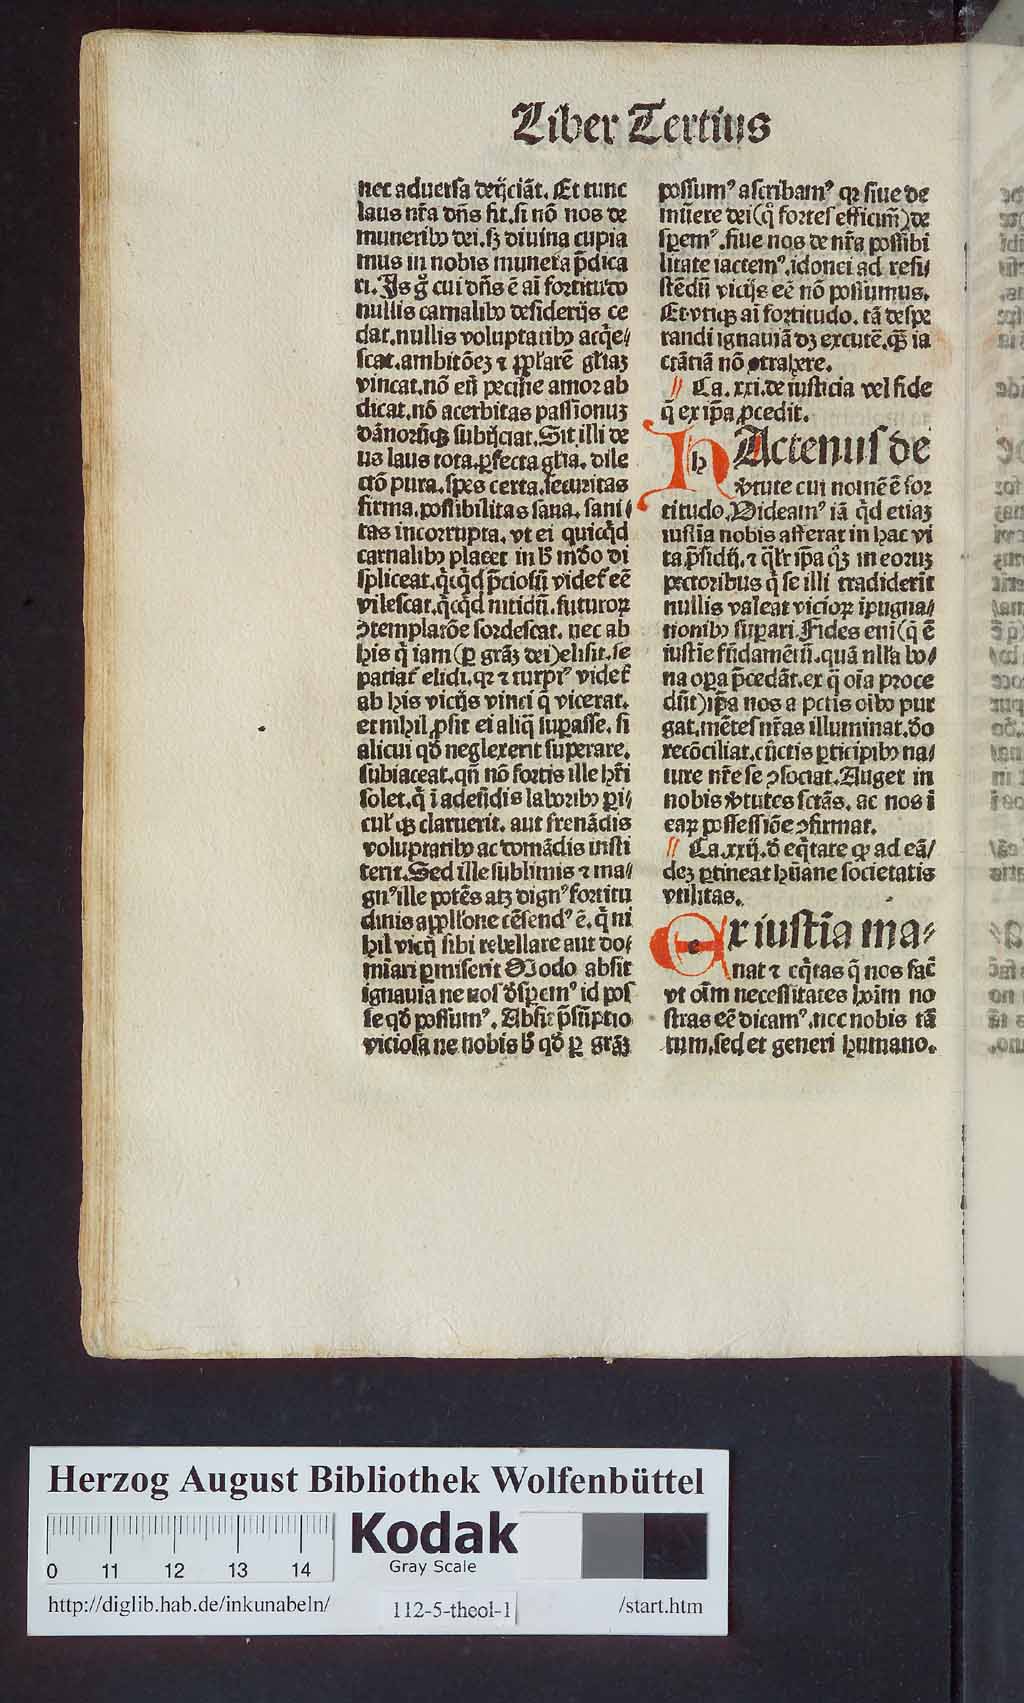 Liber Tertius
nec aduersa deijciāt. Et tunc
laus nr̄a dn̄s fit. si nō nos de
muneribꝰ dei. sꝫ diuina cupia
mus in nobis munera p̄dica
ri. Is gͦ cui dn̄s ē ai fortitudo
nullis carnalibꝰ desiderijs ce
dat. nullis voluptatibꝰ acq̄e/
scat. ambitōeꝫ ⁊ ꝓpͣlarē gl̄iaꝫ
vincat. nō eī pecūie amor ab
dicat. nō acerbitas passionuꝫ
dānorūqꝫ subijciat. Sit illi de
us laus tota. ꝑfecta gl̄ia. dile
ctō pura. spes certa. securitas
firma. possibilitas sana. sani/
tas incorrupta. vt ei quicq̇d
carnalibꝰ placet in hͦ mūdo di
spliceat. q̇cq̇d p̄ciosū videt᷑ eē
vilescat. q̇cq̇d nitidū. futuroꝝ
ꝯtemplatōe sordescat. nec ab
his q̄ iam (ꝑ grāꝫ dei) elisit. se
patiat᷑ elidi. qꝛ ⁊ turpiꝰ videt᷑
ab his vicijs vinci q̄ vicerat.
et nihil ꝓsit ei aliq̄ suꝑasse. si
alicui qd̄ neglexerit superare.
subiaceat. qn̄ nō fortis ille hr̄i
solet. q̇ ī adeūdis laboribꝰ ꝑi/
cul᷑ qꝫ claruerit. aut frenādis
voluptatibꝰ ac domādis insti
terit. Sed ille sublimis ⁊ ma/
gnꝰ ille potēs atꝫ dignꝰ fortitu
dinis appll̄one cēsendꝰ ē. q̇ ni
hil vicij sibi rebellare aut do/
miari ꝑmiserit Modo absit
ignauia ne nos de̾sꝑemꝰ id pos
se qd̄ possumꝰ. Absit p̄sūptio
viciosa ne nobis hͦ qd̄ ꝑ grāꝫ
possumꝰ ascribamꝰ qꝛ siue de
mūere dei (q̊ fortes efficim̄) de
sꝑemꝰ. siue nos de nr̄a possibi
litate iactemꝰ. idonei ad resi/
stēdū vicijs eē nō possumus.
Et vtiqꝫ ai fortitudo. tā despe
randi ignauiā dꝫ excutē. qꝫ ia
ctātiā nō ꝯtrahere.
Ca. xxi. de iusticia vel fide
q̄ ex ip̄a ꝓcedit.
h Actenus de
v̾tute cui nomē ē for
titudo. Videamꝰ iā q̇d etiaꝫ
iusti̾a nobis afferat in hac vi
ta p̄sidij. ⁊ q̄lr̄ ip̄a q̊ꝫ in eoruꝫ
pectoribus q̇ se illi tradiderit
nullis valeat vicioꝝ īpugna/
tionibꝰ suꝑari. Fides eni (q̄ ē
iusti̾e fūdamētū. quā nlla bo/
na oꝑa p̄cedāt. ex q̄ oīa proce
dūt) ip̄a nos a pctis oībꝰ pur
gat. mētes nr̄as illuminat. dō
recōciliat. cūctis ꝑticipibꝰ na/
ture nr̄e se ꝯsociat. Auget in
nobis v̾tutes sctās. ac nos ī
eaꝝ possessiōe ꝯfirmat.
Ca. xxij. d̄ eq̇tate qꝫ ad eā/
deꝫ ꝑtineat hūane societatis
vtilitas.
e x iusti̾a ma⸗
nat ⁊ eq̇tas q̄ nos fac̄
vt oīm necessitates hoīm no
stras eē dicamꝰ. nec nobis tā
tum. sed et generi humano.
Herzog August Bibliothek Wolfenbüttel
Kodak
Gray Scale
0 11 12 13 14
http://diglib.hab.de/inkunabeln/ 112-5-theol-1 /start.htm